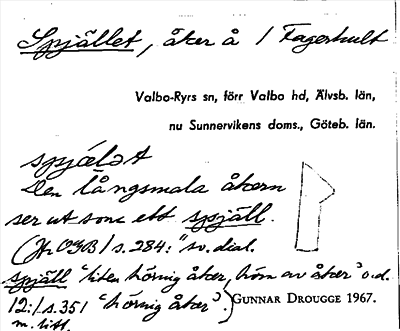 Spjället, åker å 1 Fagerhult
Valbo-Ryrs sn, förr Valbo hd, Älvsb. län,
nu Sunnervikens doms., Göteb. län.
spjæ̀lət
Den långsmala åkern
ser ut som ett spjäll.
(Jfr OGB 1 s. 284: "sv. dial.
spjäll "liten hörnig åker, hörn av åker" o.d.
12:1 s. 351 "hörnig åker".)
GUNNAR DROUGGE 1967.
m. litt.